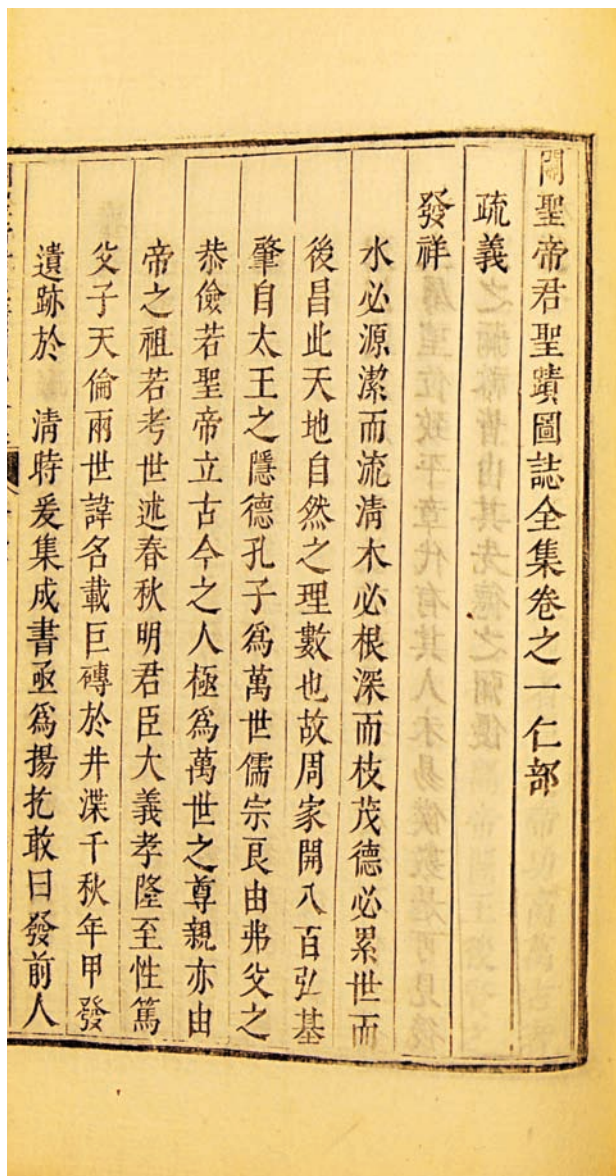 關聖帝君聖蹟圖誌全集卷之一仁部
疏義
發祥
水必源潔而流清木必根深而枝茂德必累世而
後昌此天地自然之理數也故周家開八百弘基
肇自太王之隱德孔子爲萬世儒宗良由弗父之
恭儉若聖帝立古今之人極爲萬世之尊親亦由
帝之祖若考世述春秋明君臣大義孝隆至性篤
父子天倫兩世諱名載巨磚於井渫千秋年甲發
遺跡於 清時爰集成書亟爲揚扢敢曰發前人